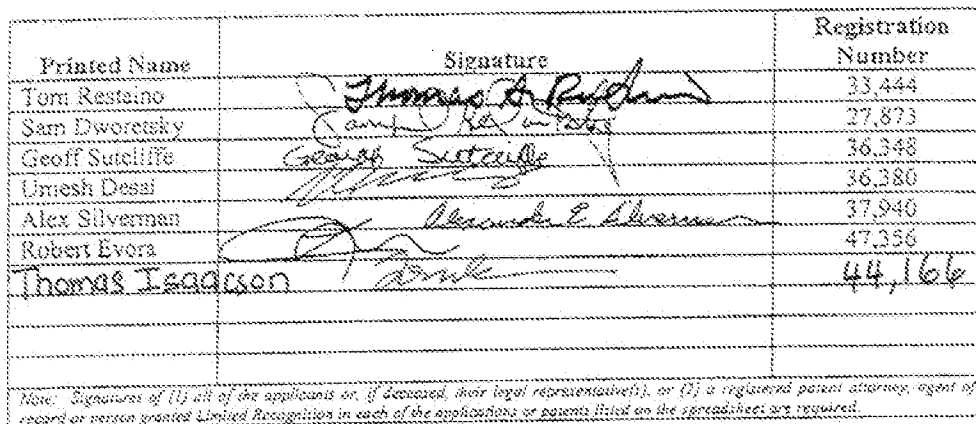 Printed Name Signature Registration Number
Tom Resteino Thomas A. 33,444
Sam Dworetsky 27,873
Geoff Sutcliffe Geoff Sutcliffe 36,348
Umesh Desai 36,380
Alex Silverman Alexander E. Silverman 37,940
Robert Evora 47,356
Thomas Isaacson 44,166
Note: Signatures of (1) all of the applicants or, if deceased, their legal representative(s), or (2) a registered patent attorney, agent of
record or person granted Limited Recognition in each of the applications or patents listed on the spreadsheet are required.